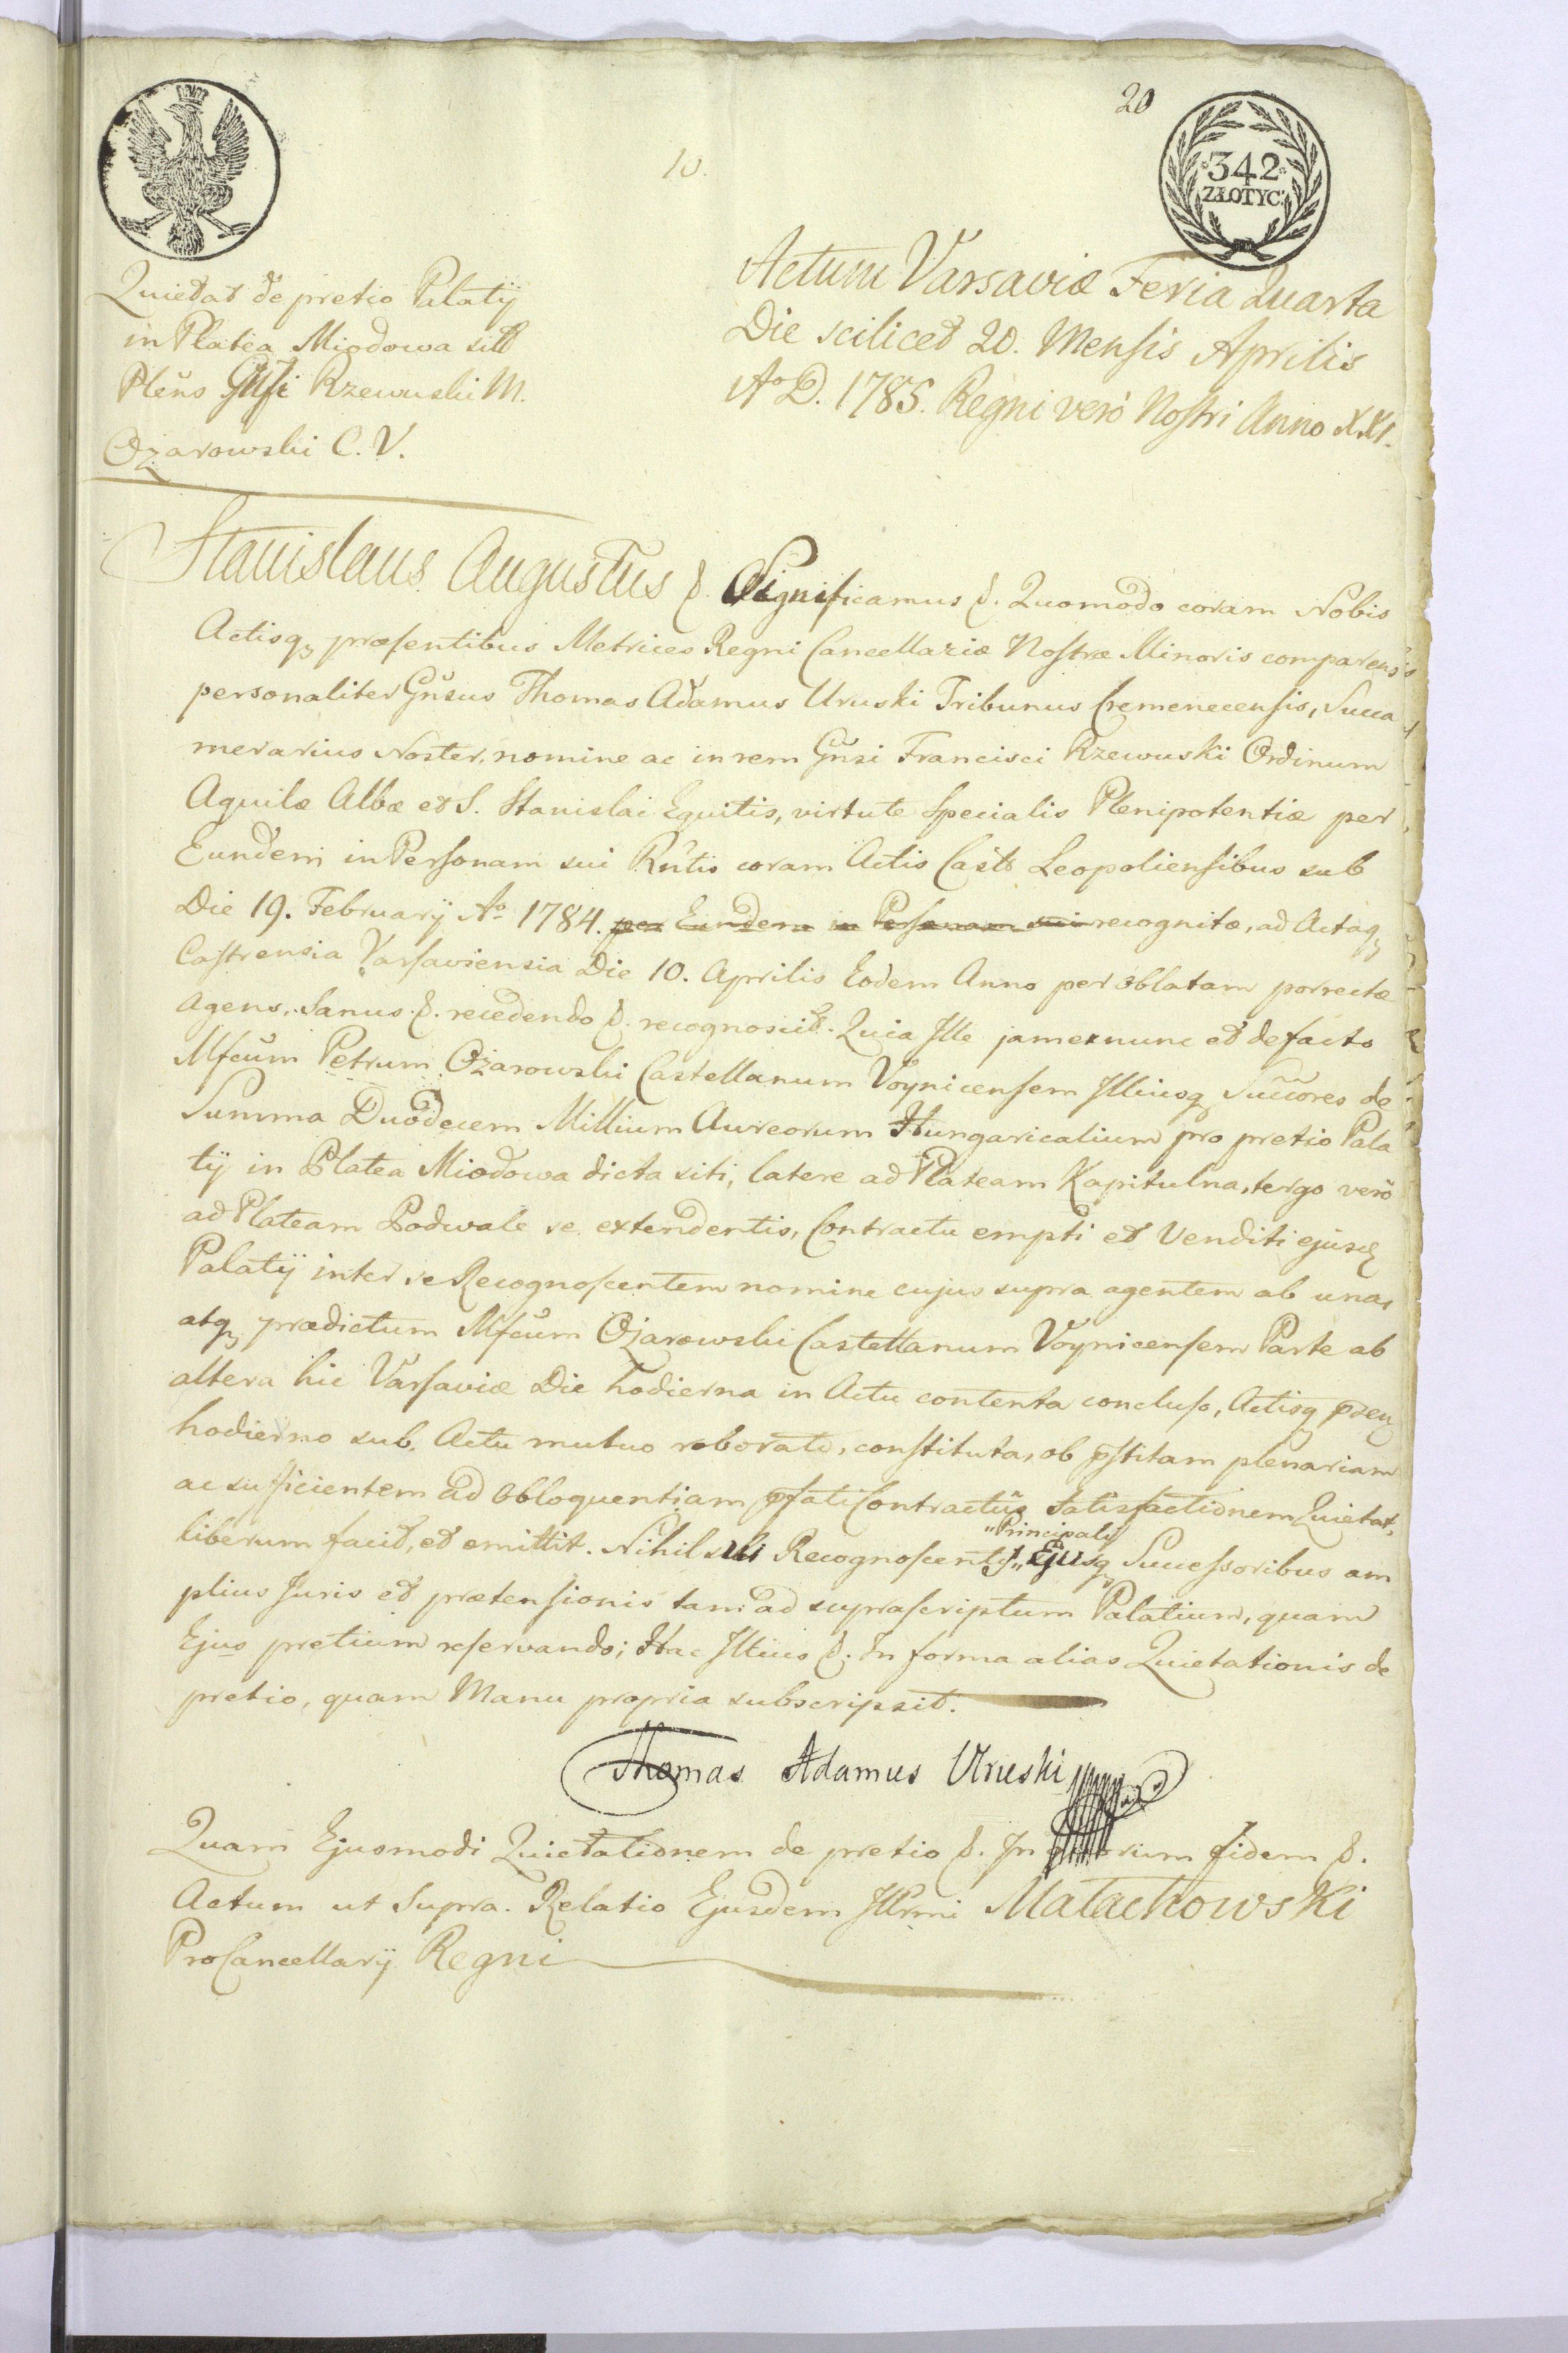 20
342
ZŁOTYC:
10.
Quietat de pretio Palatÿ
in Platea Miodowa sitt
Pleñs Gñsi Rzewuski M.
Ożarowski C. V.
Actum Varsaviæ Feria Quarta
Die scilicet 20. Mensis Aprilis
Aº D. 1785. Regni verò Nostri Anno XXI.
Stanislaus Augustus &. Significamus &. Quomodo coram Nobis
Actisq præsentibus Metrices Regni Cancellariæ Nostræ Minoris comparens
personaliter Gñsus Thomas Adamus Uruski Tribunus Cremenecensis, Succa
merarius Noster, nomine ac in rem Gñsi Francisci Rzewuski Ordinum
Aquilæ Albæ et S. Stanislai Equitis, virtute Specialis Plenipotentiæ per
Eundem in Personam sui Rñtis coram Actis Castr Leopoliensibus sub
Die 19. Februarÿ Aº 1784. per Eundem in Personam sui recognitæ, ad Actaq
Castrensia Varsaviensia Die 10. Aprilis Eodem Anno per oblatam porrectæ
Agens, Sanus &. recedendo &. recognoscit. Quia Ille jam exnunc et de facto
Mfcum Petrum Ożarowski Castellanum Voynicensem Illiusq Succores de
Summa Duodecem Millium Aureorum Hungaricalium pro pretio Pala
tÿ in Platea Miodowa dicta siti, latere ad Plateam Kapitulna, tergo verò
ad Plateam Podwale se extendentis, Contractu empti et Venditi ejusd
Palatÿ inter se Recognoscentem nomine cujus supra agentem ab una,
atq prædictum Mfcum Ożarowski Castellanum Voynicensem Parte ab
altera hic Varsaviæ Die hodierna in Actu contenta concluso, Actisq pzen
hodierno sub Actu mutuo roborato, constituta, ob pstitam plenariam
ac sufficientem ad obloquentiam pfati Contractûs Satisfactionem Quietat,
liberum facit, et emittit. Nihil sibi Recognoscentis, "Principali" Ejusq Successoribus am
plius Juris et prætensionis tam ad suprascriptum Palatium, quam
Ejus pretium reservando; Hac Illius &. In forma alias Quietationis de
pretio, quam Manu propria subscripsit.
Thomas Adamus Uruski
Quam Ejusmodi Quietationem de pretio &. In fidem &.
Actum ut Supra. Relatio Ejusdem Illrmi Małachowski
ProCancellarÿ Regni